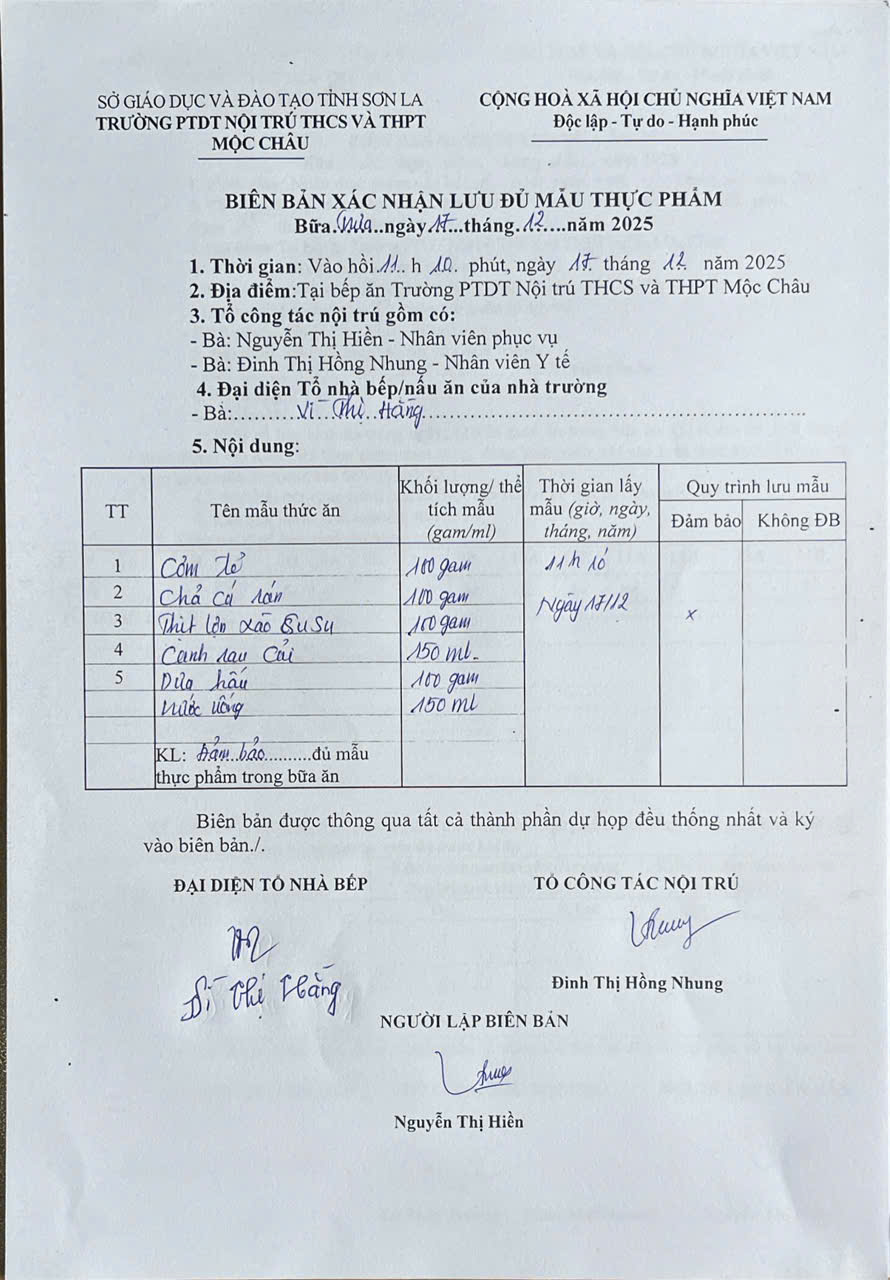 SỞ GIÁO DỤC VÀ ĐÀO TẠO TỈNH SƠN LA
TRƯỜNG PTDT NỘI TRÚ THCS VÀ THPT
MỘC CHÂU
CỘNG HOÀ XÃ HỘI CHỦ NGHĨA VIỆT NAM
Độc lập - Tự do - Hạnh phúc
BIÊN BẢN XÁC NHẬN LƯU ĐỦ MẪU THỰC PHẨM
Bữa.trưa..ngày17...tháng.12....năm 2025
1. Thời gian: Vào hồi.11.. h 10. phút, ngày 17. tháng 12 năm 2025
2. Địa điểm:Tại bếp ăn Trường PTDT Nội trú THCS và THPT Mộc Châu
3. Tổ công tác nội trú gồm có:
- Bà: Nguyễn Thị Hiền - Nhân viên phục vụ
- Bà: Đinh Thị Hồng Nhung - Nhân viên Y tế
4. Đại diện Tổ nhà bếp/nấu ăn của nhà trường
- Bà:..........Vì Thị Hằng..........
5. Nội dung:
TT Tên mẫu thức ăn Khối lượng/ thể tích mẫu (gam/ml) Thời gian lấy mẫu (giờ, ngày, tháng, năm) Quy trình lưu mẫu
Đảm bảo Không ĐB
1 Cơm tẻ 100 gam 11h 10
2 Chả cá rán 100 gam Ngày 17/12
3 Thịt lợn xào Su Su 100 gam x
4 Canh rau Cải 150 ml.
5 Dưa hấu 100 gam
Nước uống 150 ml
KL: Đảm bảo..........đủ mẫu
thực phẩm trong bữa ăn
Biên bản được thông qua tất cả thành phần dự họp đều thống nhất và ký
vào biên bản./.
ĐẠI DIỆN TỔ NHÀ BẾP
TỔ CÔNG TÁC NỘI TRÚ
Vì Thị Hằng
Đinh Thị Hồng Nhung
NGƯỜI LẬP BIÊN BẢN
Nguyễn Thị Hiền